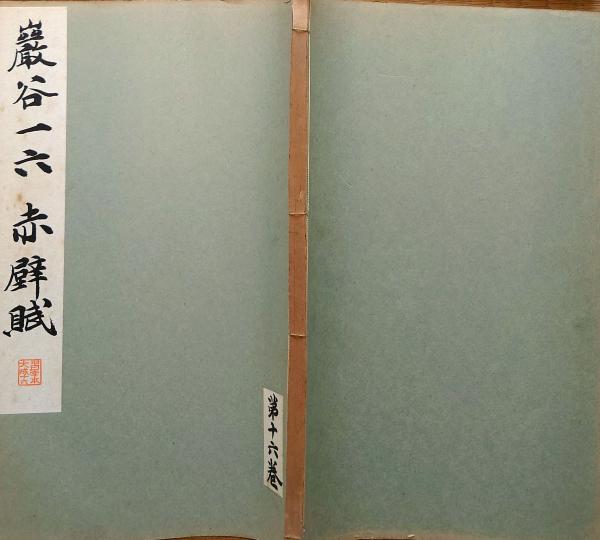 巖谷一六 赤壁賦
第十六巻